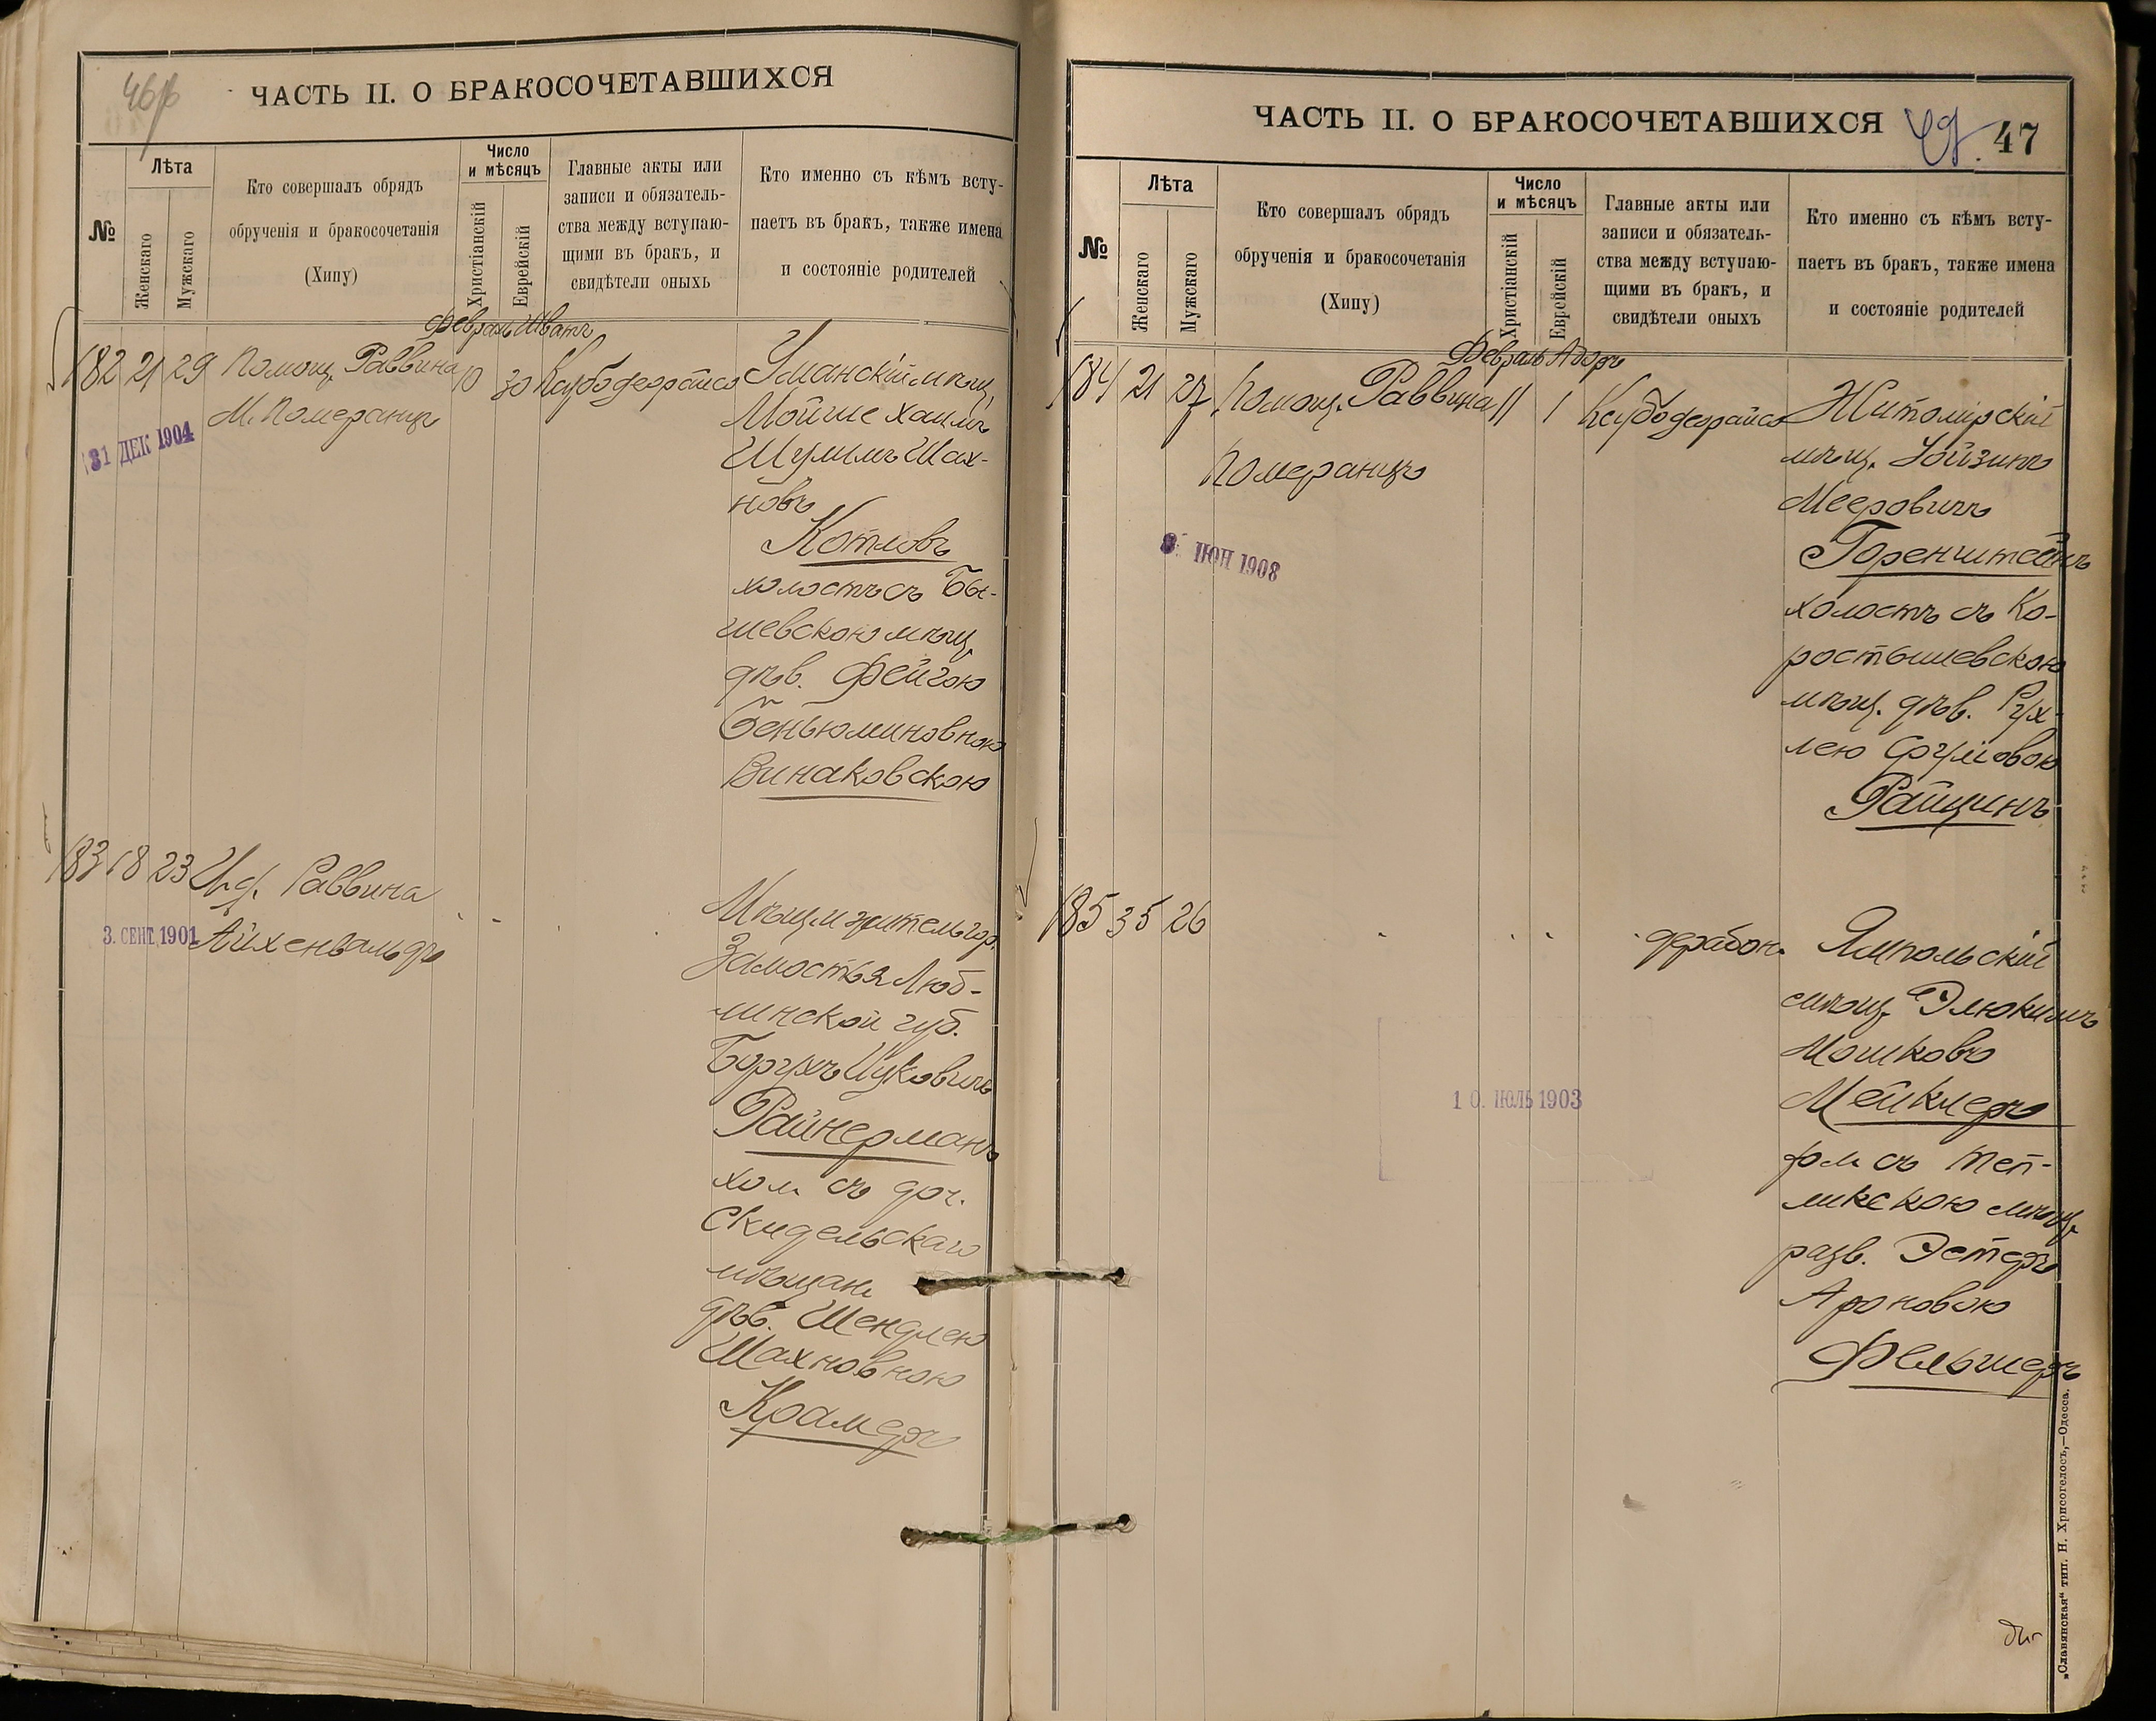 ЧАСТЬ II. О БРАКОСОЧЕТАВШИХСЯ
№
Лѣта
Женскаго
Мужскаго
Кто совершалъ обрядъ
обрученія и бракосочетанія
(Хипу)
Число
и мѣсяцъ
Христіанскій
Еврейскій
Главные акты или
записи и обязатель-
ства между вступаю-
щими въ бракъ, и
свидѣтели оныхъ
Кто именно съ кѣмъ всту-
паетъ въ бракъ, также имена
и состояніе родителей
Февраль Шватъ
182 21 29 Помощ. Раввина 10 30
М. Померанцъ
31 ДЕК 1904
Уманскій мѣщ.
Мойше Хаимъ
Шулимъ Шах-
новъ
Котловъ
холостъ съ Бы-
шевскою мѣщ.
дѣв. Фейгою
Беньюминовною
Винаковскою
183 18 23 И. д. Раввина
Айхенвальдъ
3. СЕНТ. 1901
Мѣщ. и житель гор.
Замостья Люб-
линской губ.
Борухъ Ицковичъ
Райнерманъ
хол. съ доч.
Скидельскаго
мѣщан.
дѣв. Шендлею
Шахновною
Крамеръ
ЧАСТЬ II. О БРАКОСОЧЕТАВШИХСЯ
47
№
Лѣта
Женскаго
Мужскаго
Кто совершалъ обрядъ
обрученія и бракосочетанія
(Хипу)
Число
и мѣсяцъ
Христіанскій
Еврейскій
Главные акты или
записи и обязатель-
ства между вступаю-
щими въ бракъ, и
свидѣтели оныхъ
Кто именно съ кѣмъ всту-
паетъ въ бракъ, также имена
и состояніе родителей
Февраль Адаръ
184 21 27 Помощ. Раввина 11 1
Померанцъ
ИЮН 1908
Житомірскій
мѣщ. Уйзинъ
Мееровичъ
Горенштейнъ
холостъ съ Ко-
ростышевскою
мѣщ. дѣв. Рух-
лею Срулiовою
Райцинъ
185 35 26
10. ИЮЛЬ 1903
Ямпольскій
мѣщ. Элюкимъ
Мошковъ
Мейклеръ
съ Теп-
ликскою мѣщ.
разв. Эстеръ
Ароновою
Фельшеръ
„Славянская“ тип. Н. Хрисогелосъ,—Одесса.